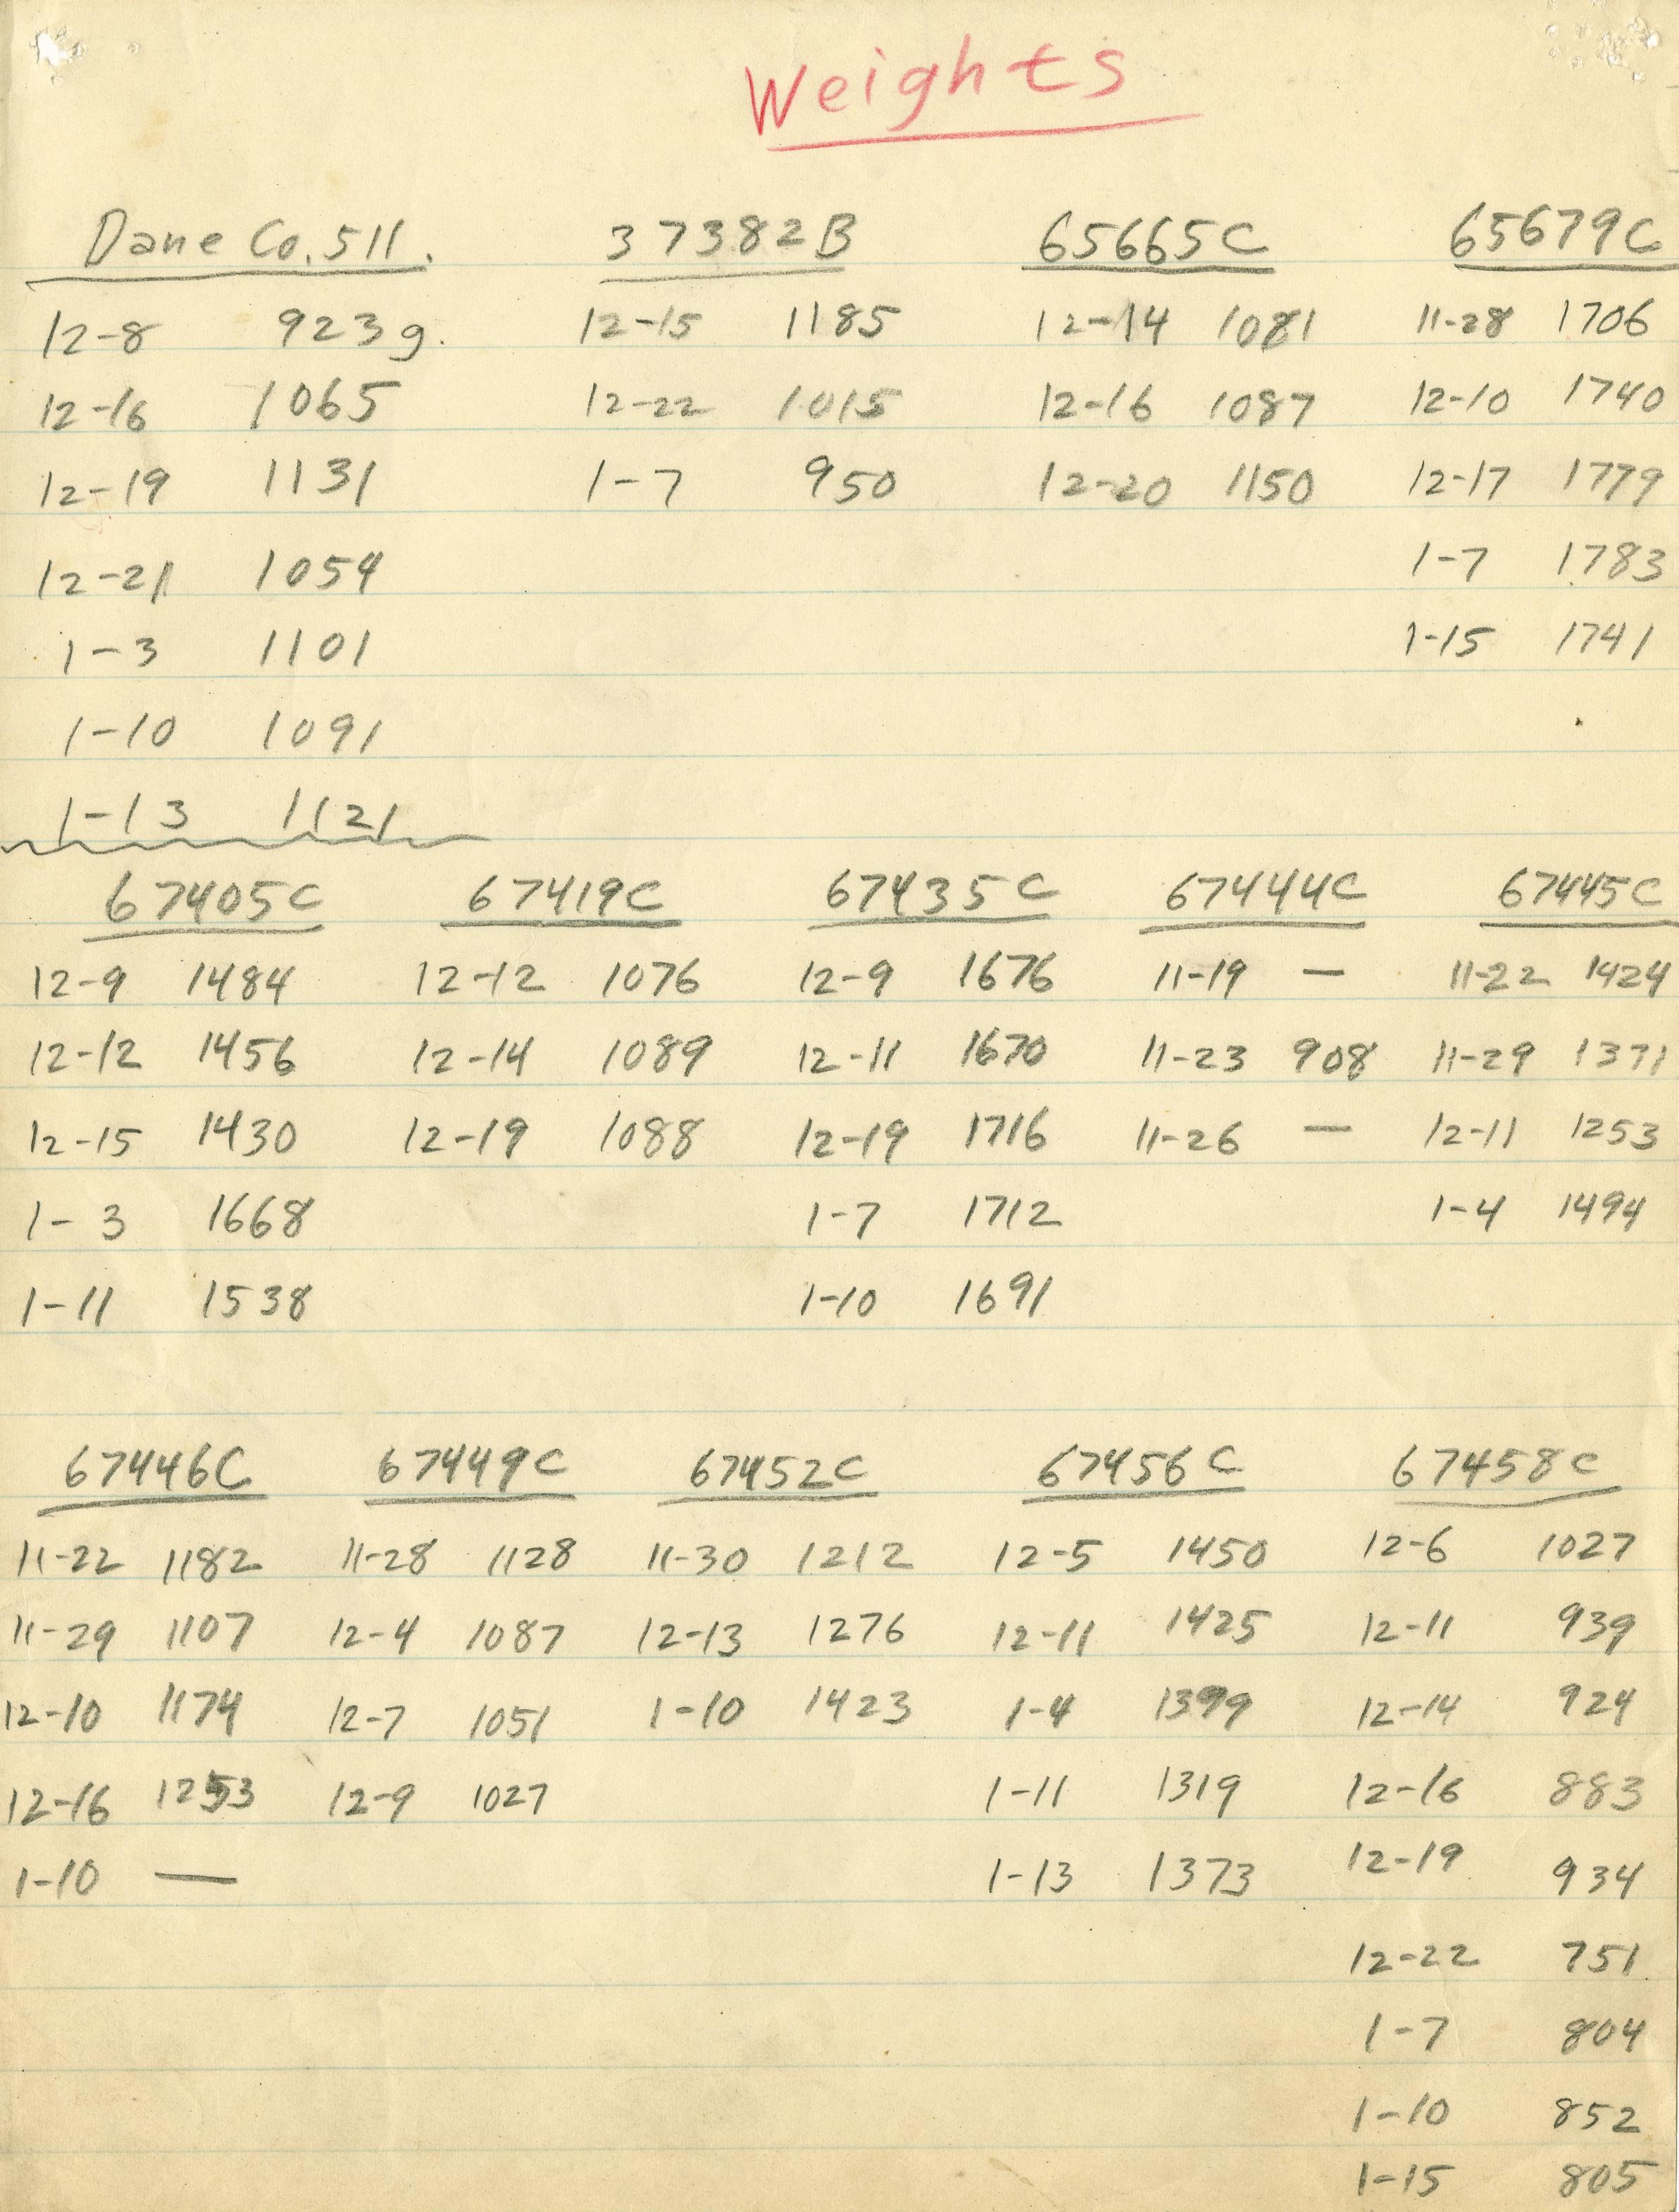 Weights
Dane Co. 511. 37382B 65665C 65679C
12-8 923 g. 12-15 1185 12-14 1081 11-28 1706
12-16 1065 12-22 1015 12-16 1087 12-10 1740
12-19 1131 1-7 950 12-20 1150 12-17 1779
12-21 1054 1-7 1783
1-3 1101 1-15 1741
1-10 1091
1-13 1121
67405C 67419C 67435C 67444C 67445C
12-9 1484 12-12 1076 12-9 1676 11-19 — 11-22 1424
12-12 1456 12-14 1089 12-11 1670 11-23 908 11-29 1371
12-15 1430 12-19 1088 12-19 1716 11-26 — 12-11 1253
1-3 1668 1-7 1712 1-4 1494
1-11 1538 1-10 1691
67446C 67449C 67452C 67456C 67458C
11-22 1182 11-28 1128 11-30 1212 12-5 1450 12-6 1027
11-29 1107 12-4 1087 12-13 1276 12-11 1425 12-11 939
12-10 1174 12-7 1051 1-10 1423 1-4 1399 12-14 924
12-16 1253 12-9 1027 1-11 1319 12-16 883
1-10 — 1-13 1373 12-19 934
12-22 751
1-7 804
1-10 852
1-15 805